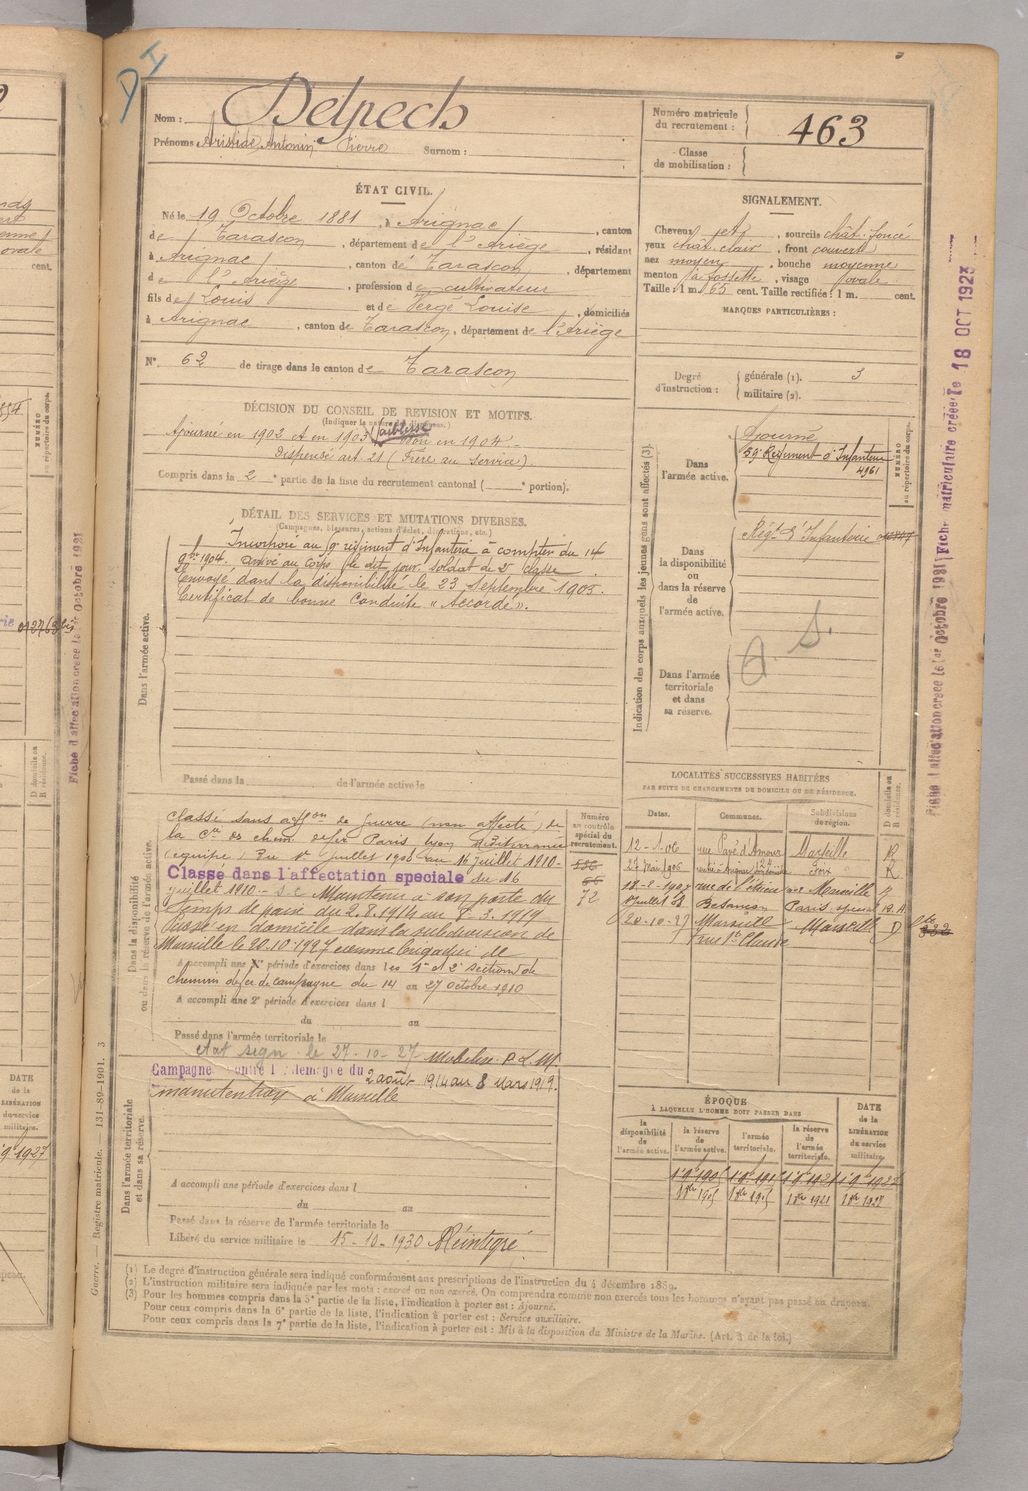 DI
Nom : Delpech
Prénoms : Aristide Antonin Pierre Surnom :
Numéro matricule du recrutement : 463
Classe de mobilisation :
ÉTAT CIVIL.
Né le 19 Octobre 1881, à Arignac, canton
de Tarascon, département de l'Ariège, résidant
à Arignac, canton de Tarascon, département
de l'Ariège, profession de cultivateur
fils de Louis et de Vergé Louise, domiciliés
à Arignac, canton de Tarascon, département de l'Ariège
N° 62 de tirage dans le canton de Tarascon
SIGNALEMENT.
Cheveux , sourcils chât. foncé
yeux chât. clair, front couvert
nez moyen, bouche moyenne
menton à fossette, visage ovale
Taille : 1 m. 65 cent. Taille rectifiée : 1 m. cent.
MARQUES PARTICULIÈRES :
Degré d'instruction : générale (1). 3
militaire (2).
DÉCISION DU CONSEIL DE REVISION ET MOTIFS.
Ajourné en 1902 et en 1903 (faiblesse) bon en 1904 -
Dispensé art. 21 (Frère au service).
Compris dans la 2e partie de la liste du recrutement cantonal ( e portion).
DÉTAIL DES SERVICES ET MUTATIONS DIVERSES.
(Campagnes, blessures, actions d'éclat, décorations, etc.)
Dans l'armée active.
Incorporé au 59e régiment d'Infanterie à compter du 14
9bre 1904, arrivé au corps le dit jour. Soldat de 2e classe
Envoyé dans la disponibilité le 23 Septembre 1905.
Certificat de bonne conduite « Accordé ».
Passé dans la de l'armée active le
Indication des corps auxquels les jeunes gens sont affectés (3)
NUMÉRO au répertoire du corps.
Dans l'armée active.
Ajourné
59e Régiment d'Infanterie
4961
Dans la disponibilité ou dans la réserve de l'armée active.
Régt d'Infanterie
Dans l'armée territoriale et dans sa réserve.
A. S.
Dans la disponibilité ou dans la réserve de l'armée active.
Classé sans affon de guerre (non affecté) de
la Cie des chem. de fer Paris Lyon Méditerranée
(équipe) Du 1er juillet 1906 au 16 juillet 1910 -
Classé dans l'affectation spéciale du 16
juillet 1910 - s.c Maintenu à son poste du
temps de paix du 2.8.1914 au 8.3.1919
Passé en domicile dans la subdivision de
Marseille le 20.10.1927 comme brigadier de
A accompli une 1re période d'exercices dans les 1e et 2e sections de
chemin de fer de campagne du 14 au 27 octobre 1910
A accompli une 2e période d'exercices dans l
du au
Passé dans l'armée territoriale le
Etat sign le 27-10-27 Mobilisé P.L.M.
Numéro au contrôle spécial du recrutement.
72
LOCALITÉS SUCCESSIVES HABITÉES
PAR SUITE DE CHANGEMENTS DE DOMICILE OU DE RÉSIDENCE.
Dates. Communes. Subdivisions de région. D domicile ou R résidence.
12-1-06 rue Pavé d'Amour Marseille R
27 Mai 1906 Foix R
18-2-1907 Marseille R
Besançon Paris
20-10-27 Marseille Marseille D
rue Ste Claude
Dans l'armée territoriale et dans sa réserve.
Campagne contre l'Allemagne du 2 août 1914 au 8 Mars 1919.
manutention à Marseille
A accompli une période d'exercices dans l
du au
Passé dans la réserve de l'armée territoriale le
Libéré du service militaire le 15-10-1930 Réintégré
ÉPOQUE
À LAQUELLE L'HOMME DOIT PASSER DANS
la disponibilité de l'armée active. la réserve de l'armée active. l'armée territoriale. la réserve de l'armée territoriale. DATE de la LIBÉRATION du service militaire.
(1) Le degré d'instruction générale sera indiqué conformément aux prescriptions de l'instruction du 4 décembre 1889.
(2) L'instruction militaire sera indiquée par les mots : exercé ou non exercé. On comprendra comme non exercés tous les hommes n'ayant pas passé au drapeau.
(3) Pour les hommes compris dans la 5e partie de la liste, l'indication à porter est : Ajourné.
Pour ceux compris dans la 6e partie de la liste, l'indication à porter est : Service auxiliaire.
Pour ceux compris dans la 7e partie de la liste, l'indication à porter est : Mis à la disposition du Ministre de la Marine. (Art. 3 de la loi.)
Guerre. — Registre matricule. — 131-89-1901. 3
Fiche matriculaire créée le 18 OCT 1923
Fiche d'affectation créée le 1er Octobre 1921
Fiche d'affectation créée le 1er Octobre 1921